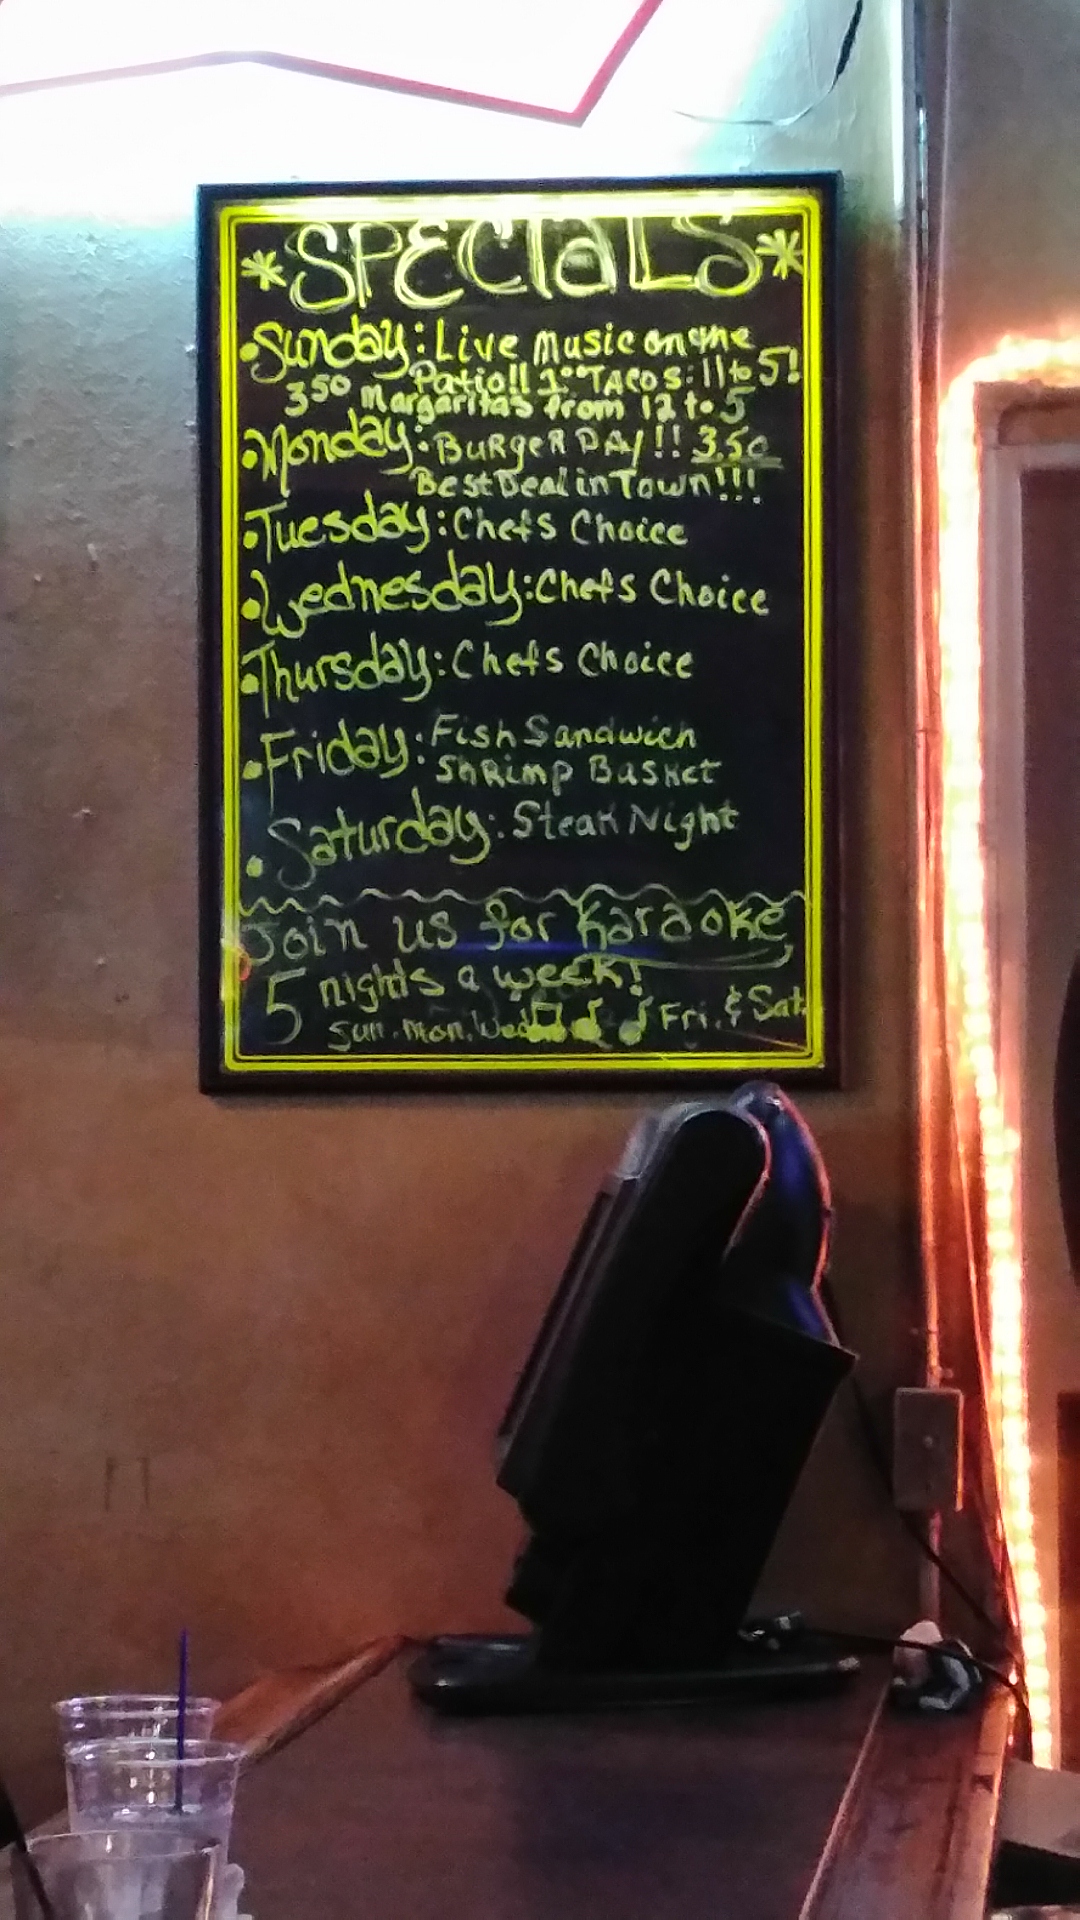 * SPECIALS *
• Sunday: Live Music on the
Patio!! 1.00 TACOS: 11 to 5!
3.50 Margaritas from 12 to 5
• Monday: BURGER DAY!! 3.50
Best Deal in Town!!!
• Tuesday: Chefs Choice
• Wednesday: Chefs Choice
• Thursday: Chefs Choice
• Friday: Fish Sandwich
Shrimp Basket
• Saturday: Steak Night
Join us for Karaoke
5 nights a week!
Sun. Mon. Wed Fri. & Sat.